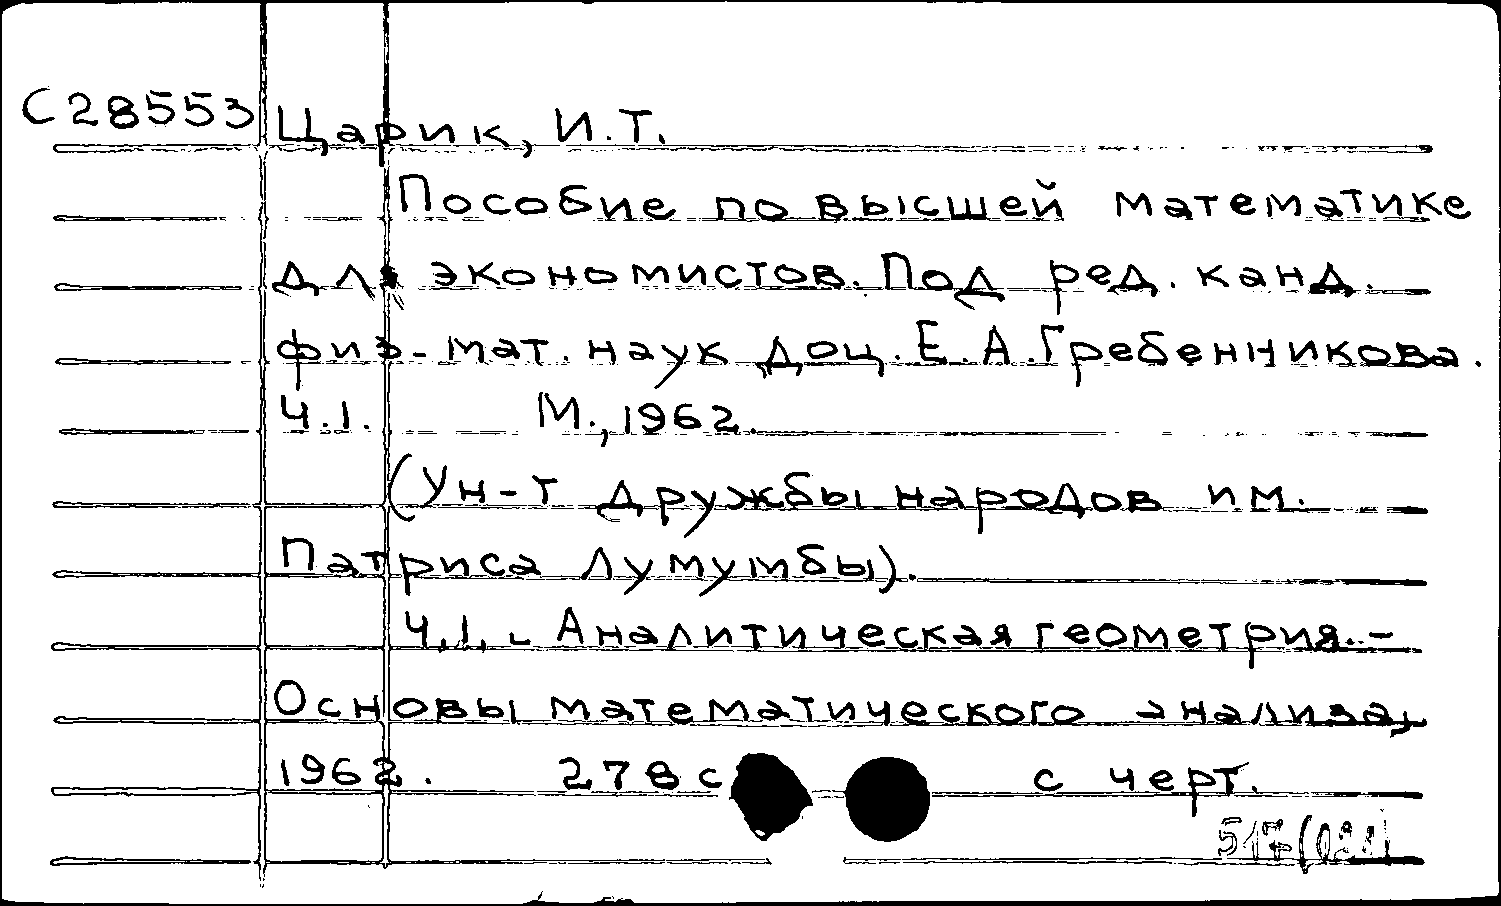 С28553 Царик, И.Т.
Пособие по высшей математике
для экономистов. Под ред. канд.
физ-мат. наук доц. Е.А.Гребенникова.
Ч.1. М., 1962.
(Ун-т дружбы народов им.
Патриса Лумумбы).
Ч.1. - Аналитическая геометрия. -
Основы математического анализа,
1962. 278 с с черт.